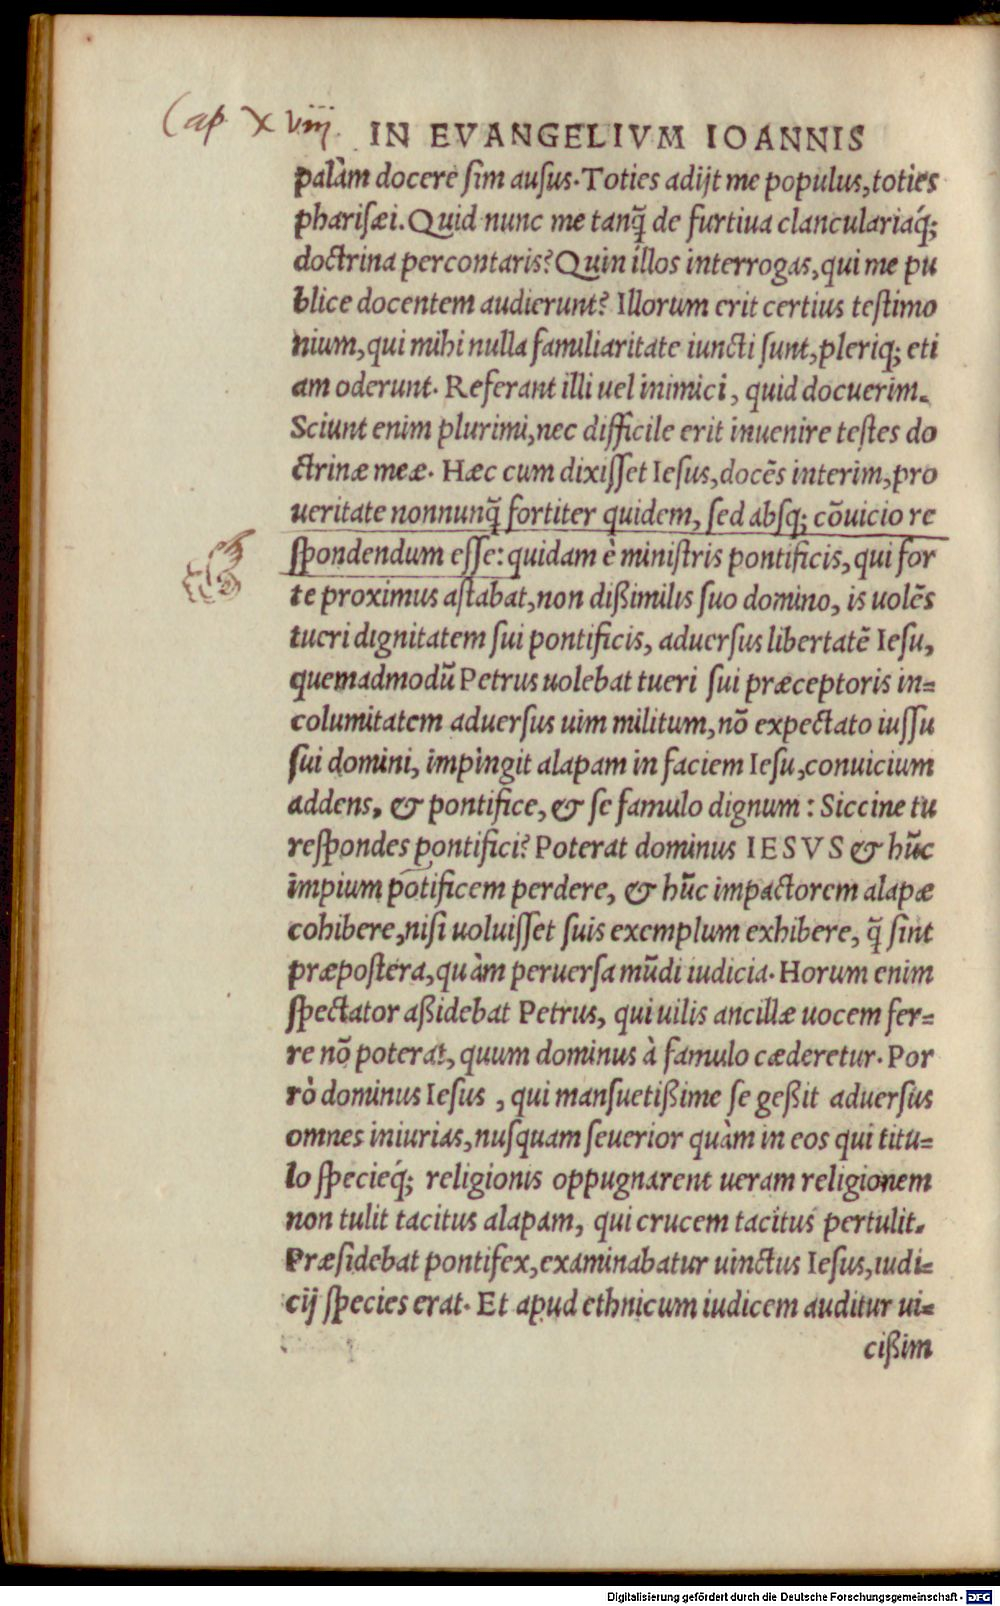 Cap XViij.
IN EVANGELIVM IOANNIS
palàm docere sim ausus. Toties adijt me populus, toties
pharisæi. Quid nunc me tanq̃ de furtiua clanculariaq́;
doctrina percontaris? Quin illos interrogas, qui me pu
blice docentem audierunt? Illorum erit certius testimo
nium, qui mihi nulla familiaritate iuncti sunt, pleriq; eti
am oderunt. Referant illi uel inimici, quid docuerim.
Sciunt enim plurimi, nec difficile erit inuenire testes do
ctrinæ meæ. Hæc cum dixisset Iesus, docẽs interim, pro
ueritate nonnunq̃ fortiter quidem, sed absq; cõuicio re
spondendum esse: quidam è ministris pontificis, qui for
te proximus astabat, non dißimilis suo domino, is uolẽs
tueri dignitatem sui pontificis, aduersus libertatẽ Iesu,
quemadmodũ Petrus uolebat tueri sui præceptoris in=
columitatem aduersus uim militum, nõ expectato iussu
sui domini, impingit alapam in faciem Iesu, conuicium
addens, & pontifice, & se famulo dignum: Siccine tu
respondes pontifici? Poterat dominus IESVS & hũc
impium põtificem perdere, & hũc impactorem alapæ
cohibere, nisi uoluisset suis exemplum exhibere, q̃ sint
præpostera, quàm peruersa mũdi iudicia. Horum enim
spectator aßidebat Petrus, qui uilis ancillæ uocem fer=
re nõ poterat, quum dominus à famulo cæderetur. Por
rò dominus Iesus, qui mansuetißime se geßit aduersus
omnes iniurias, nusquam seuerior quàm in eos qui titu=
lo specieq́; religionis oppugnarent ueram religionem
non tulit tacitus alapam, qui crucem tacitus pertulit.
Præsidebat pontifex, examinabatur uinctus Iesus, iudi=
cij species erat. Et apud ethnicum iudicem auditur ui=
cißim
Digitalisierung gefördert durch die Deutsche Forschungsgemeinschaft - DFG